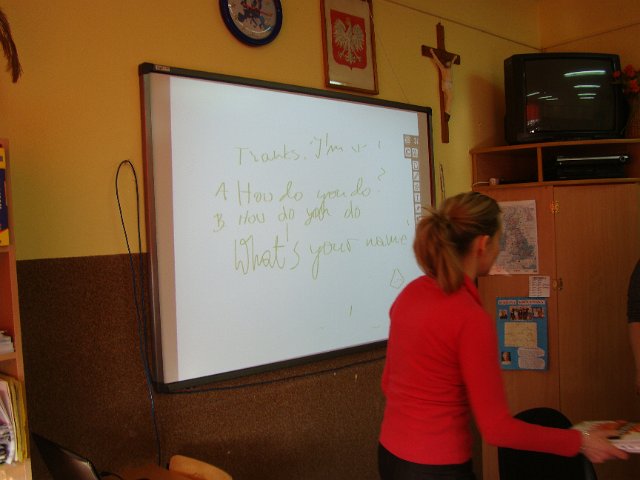 Thanks. I'm
A How do you do?
B. How do you do
What's your name